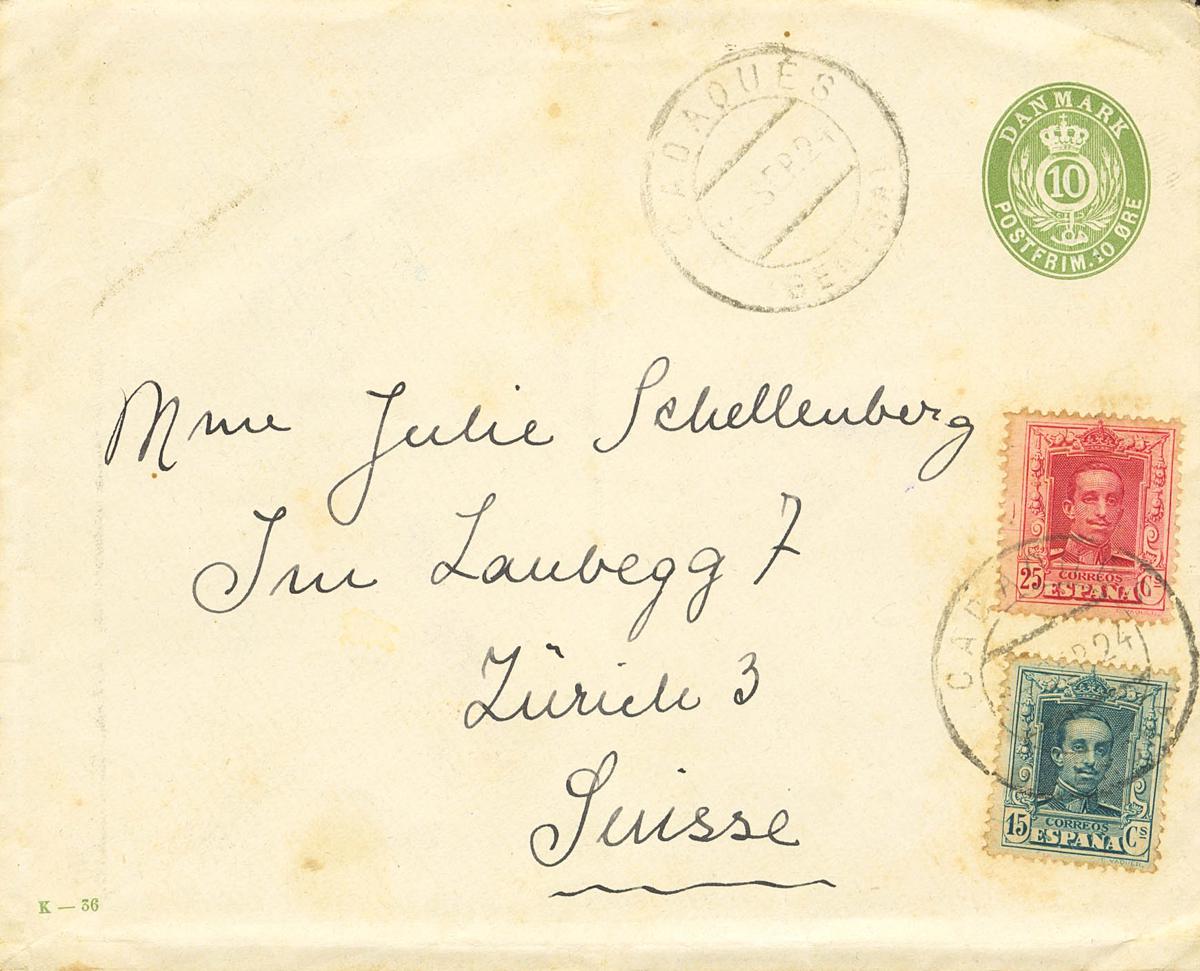 CADAQUÉS
SEP 24
GERONA
DANMARK
10
POSTFRIM. 10 ØRE
Mme Julie Schellenberg
Im Laubegg 7
Zürich 3
Suisse
25 CORREOS Cs
ESPAÑA
24
15 CORREOS Cs
ESPAÑA
K — 36